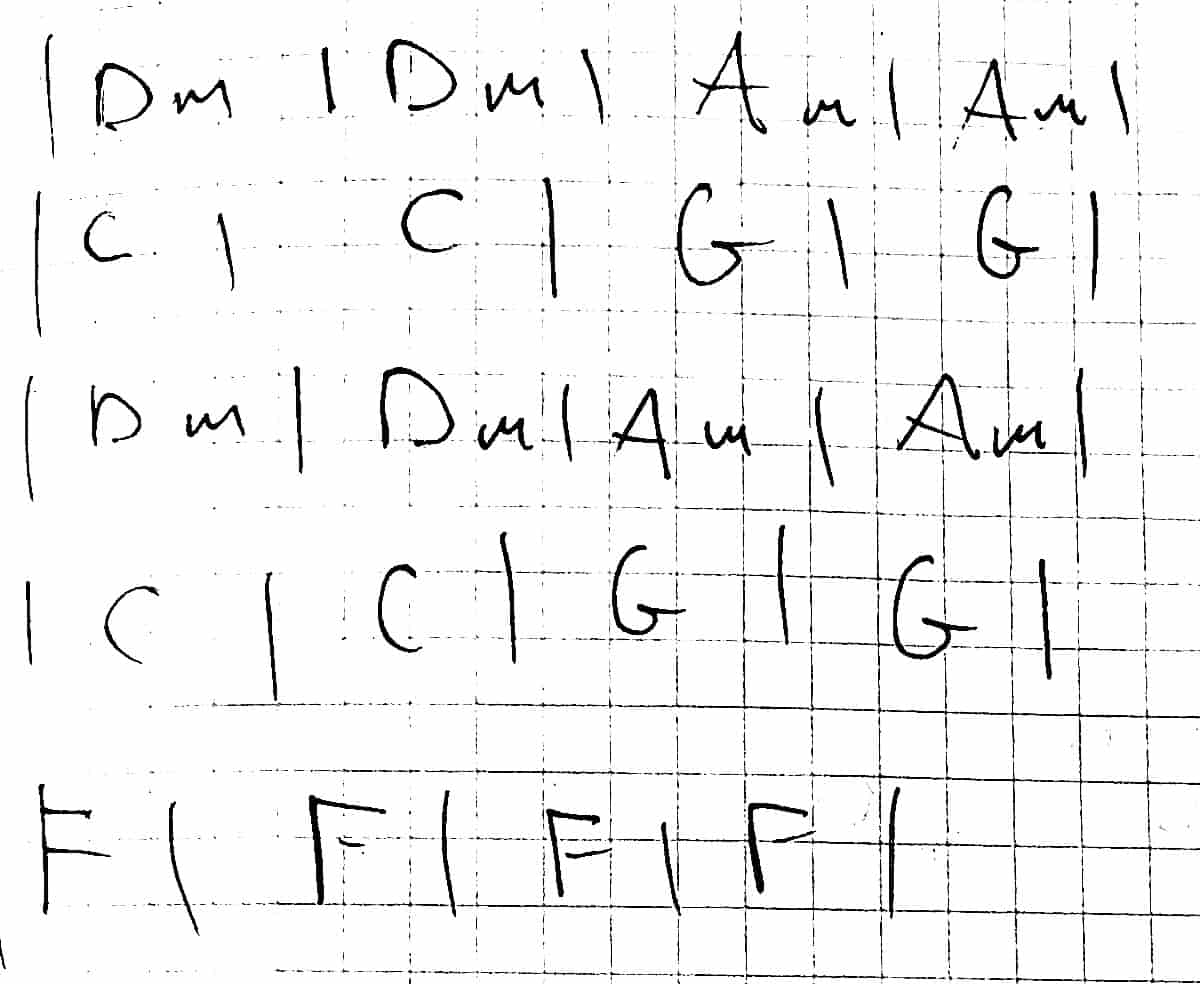 | Dm | Dm | Am | Am |
| C | C | G | G |
| Dm | Dm | Am | Am |
| C | C | G | G |
F | F | F | F |